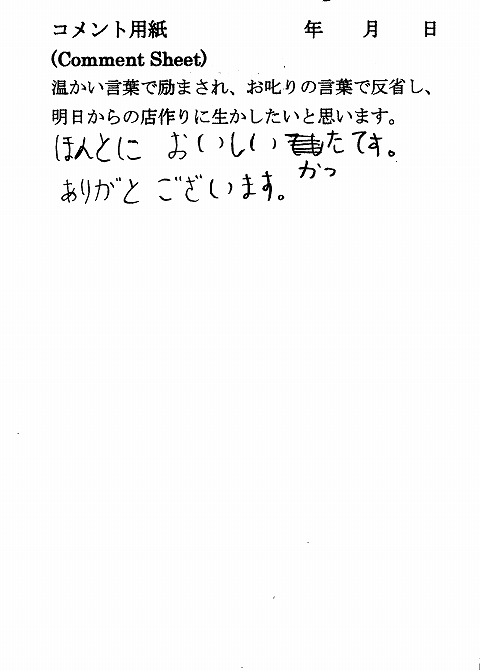 コメント用紙 年 月 日
(Comment Sheet)
温かい言葉で励まされ、お叱りの言葉で反省し、
明日からの店作りに生かしたいと思います。
ほんとに おいしいかったてす。
ありがと ございます。